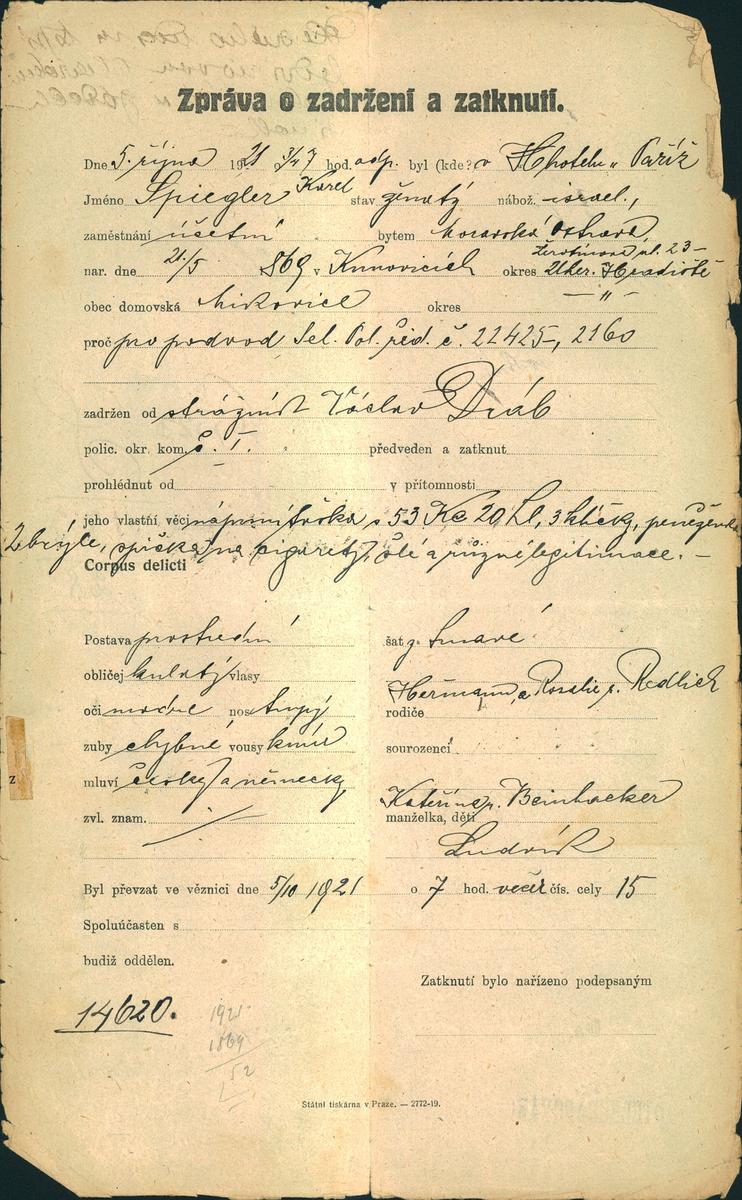 Zpráva o zadržení a zatknutí.
Dne 5. října 1921 o 3/4 7 hod. odp. byl (kde?) v Hhotelu „Paříž
Jméno Spiegler Karel stav ženatý nábož. israel.,
zaměstnání účetní bytem Moravská Ostrava
Žerotínova ul. 23 –
nar. dne 21/5 869 v Kunovicích okres Uher. Hradiště
obec domovská Mikovice okres — " —
proč pro podvod Sel. Pol. řed. č. 22425–, 2160
zadržen od strážník Václav Dráb
polic. okr. kom. č. I. předveden a zatknut
prohlédnut od v přítomnosti
jeho vlastní věci náprsní toška s 53 Kč 20 hl, 3 klíčky, peněženka
2 brýle, špička na cigarety, šle a různé legitimace. –
Corpus delicti
Postava prostřední šat z. tmavé
obličej kulatý vlasy
Heřmann, a Rosalie r. Redlich
oči modré nos tupý rodiče
zuby chybné vousy knír sourozenci
mluví český a německy
Kateřina r. Beinhacker
zvl. znam. manželka, děti
Ludvík
Byl převzat ve věznici dne 5/10 1921 o 7 hod. večer čís. cely 15
Spoluúčasten s
budiž oddělen.
Zatknutí bylo nařízeno podepsaným
14620.
1921
1869
52
Státní tiskárna v Praze. — 2772-19.
z